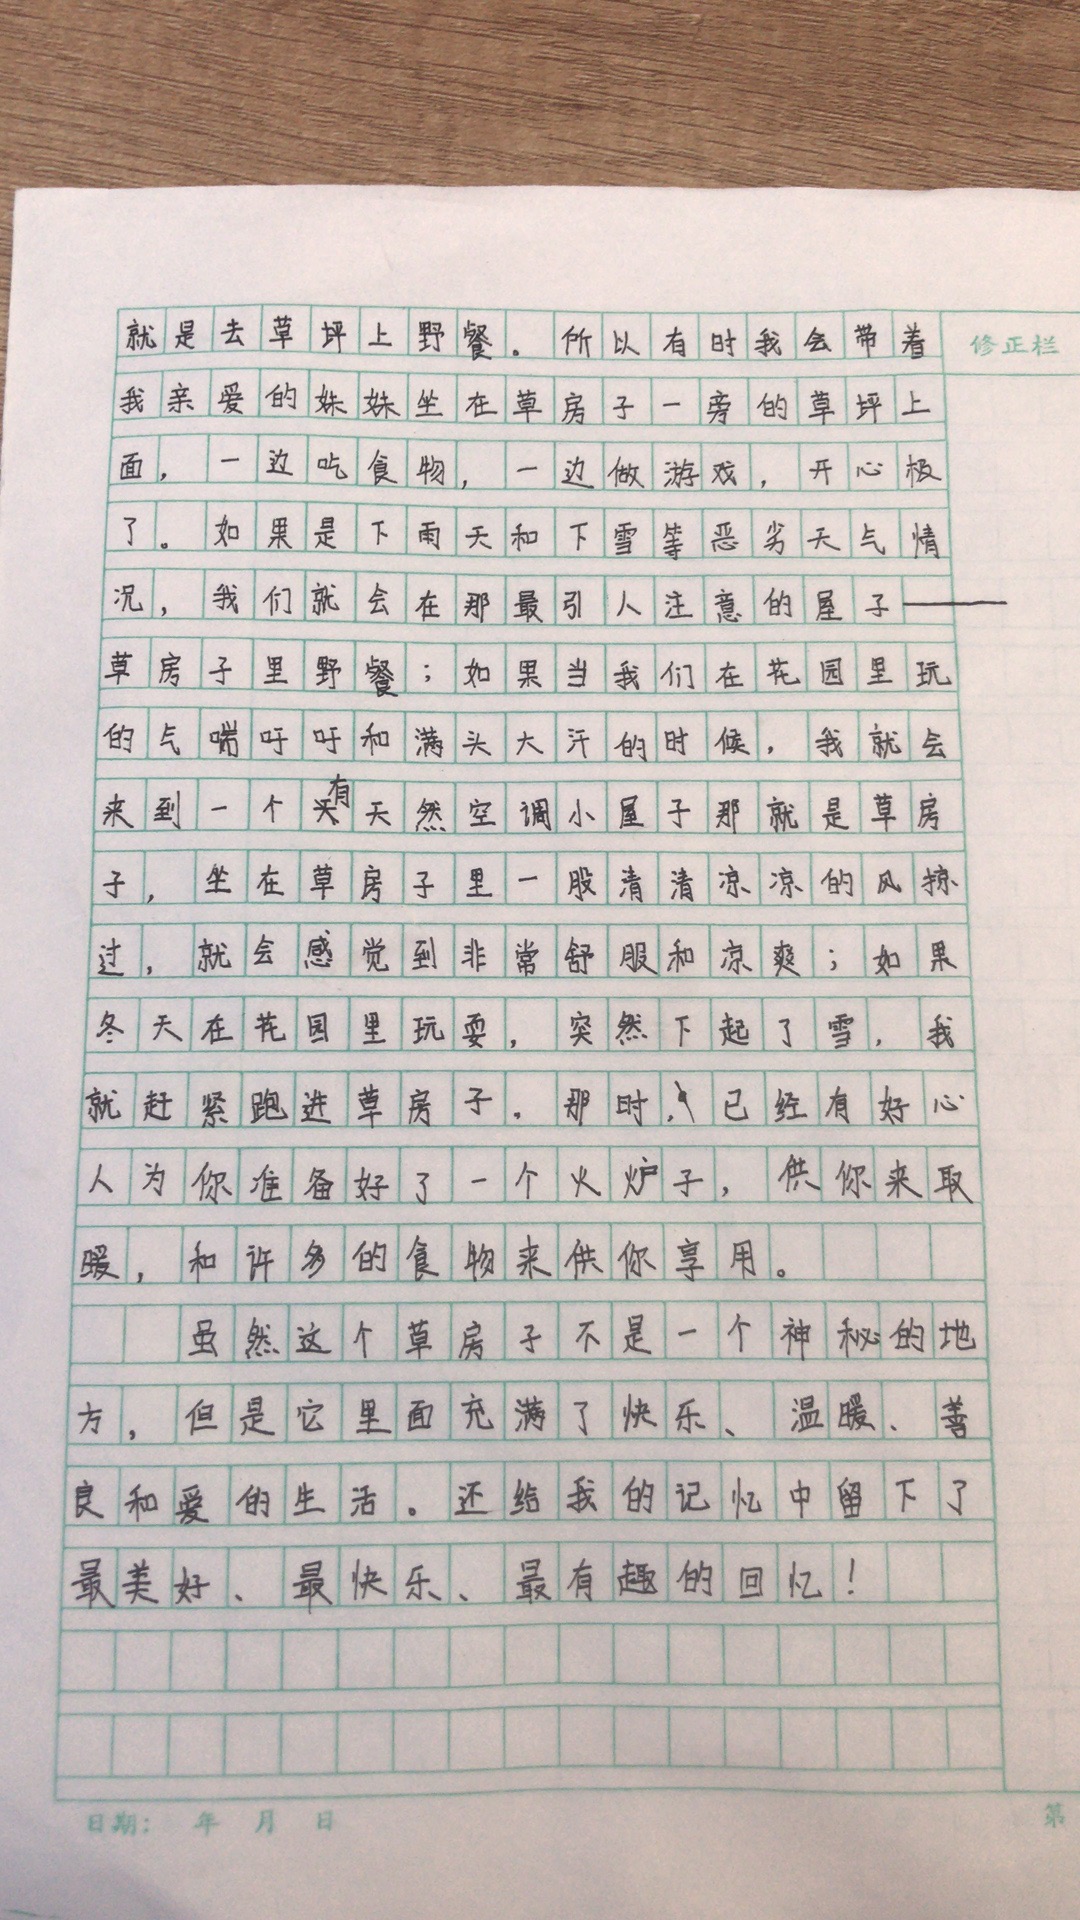 就是去草坪上野餐。所以有时我会带着
修正栏
我亲爱的妹妹坐在草房子一旁的草坪上
面，一边吃食物，一边做游戏，开心极
了。如果是下雨天和下雪等恶劣天气情
况，我们就会在那最引人注意的屋子——
草房子里野餐；如果当我们在花园里玩
的气喘吁吁和满头大汗的时候，我就会
来到一个有天然空调小屋子那就是草房
子，坐在草房子里一股清清凉凉的风掠
过，就会感觉到非常舒服和凉爽；如果
冬天在花园里玩耍，突然下起了雪，我
就赶紧跑进草房子。那时，已经有好心
人为你准备好了一个火炉子，供你来取
暖，和许多的食物来供你享用。
虽然这个草房子不是一个神秘的地
方，但是它里面充满了快乐、温暖、善
良和爱的生活。还给我的记忆中留下了
最美好、最快乐、最有趣的回忆！
日期： 年 月 日
第